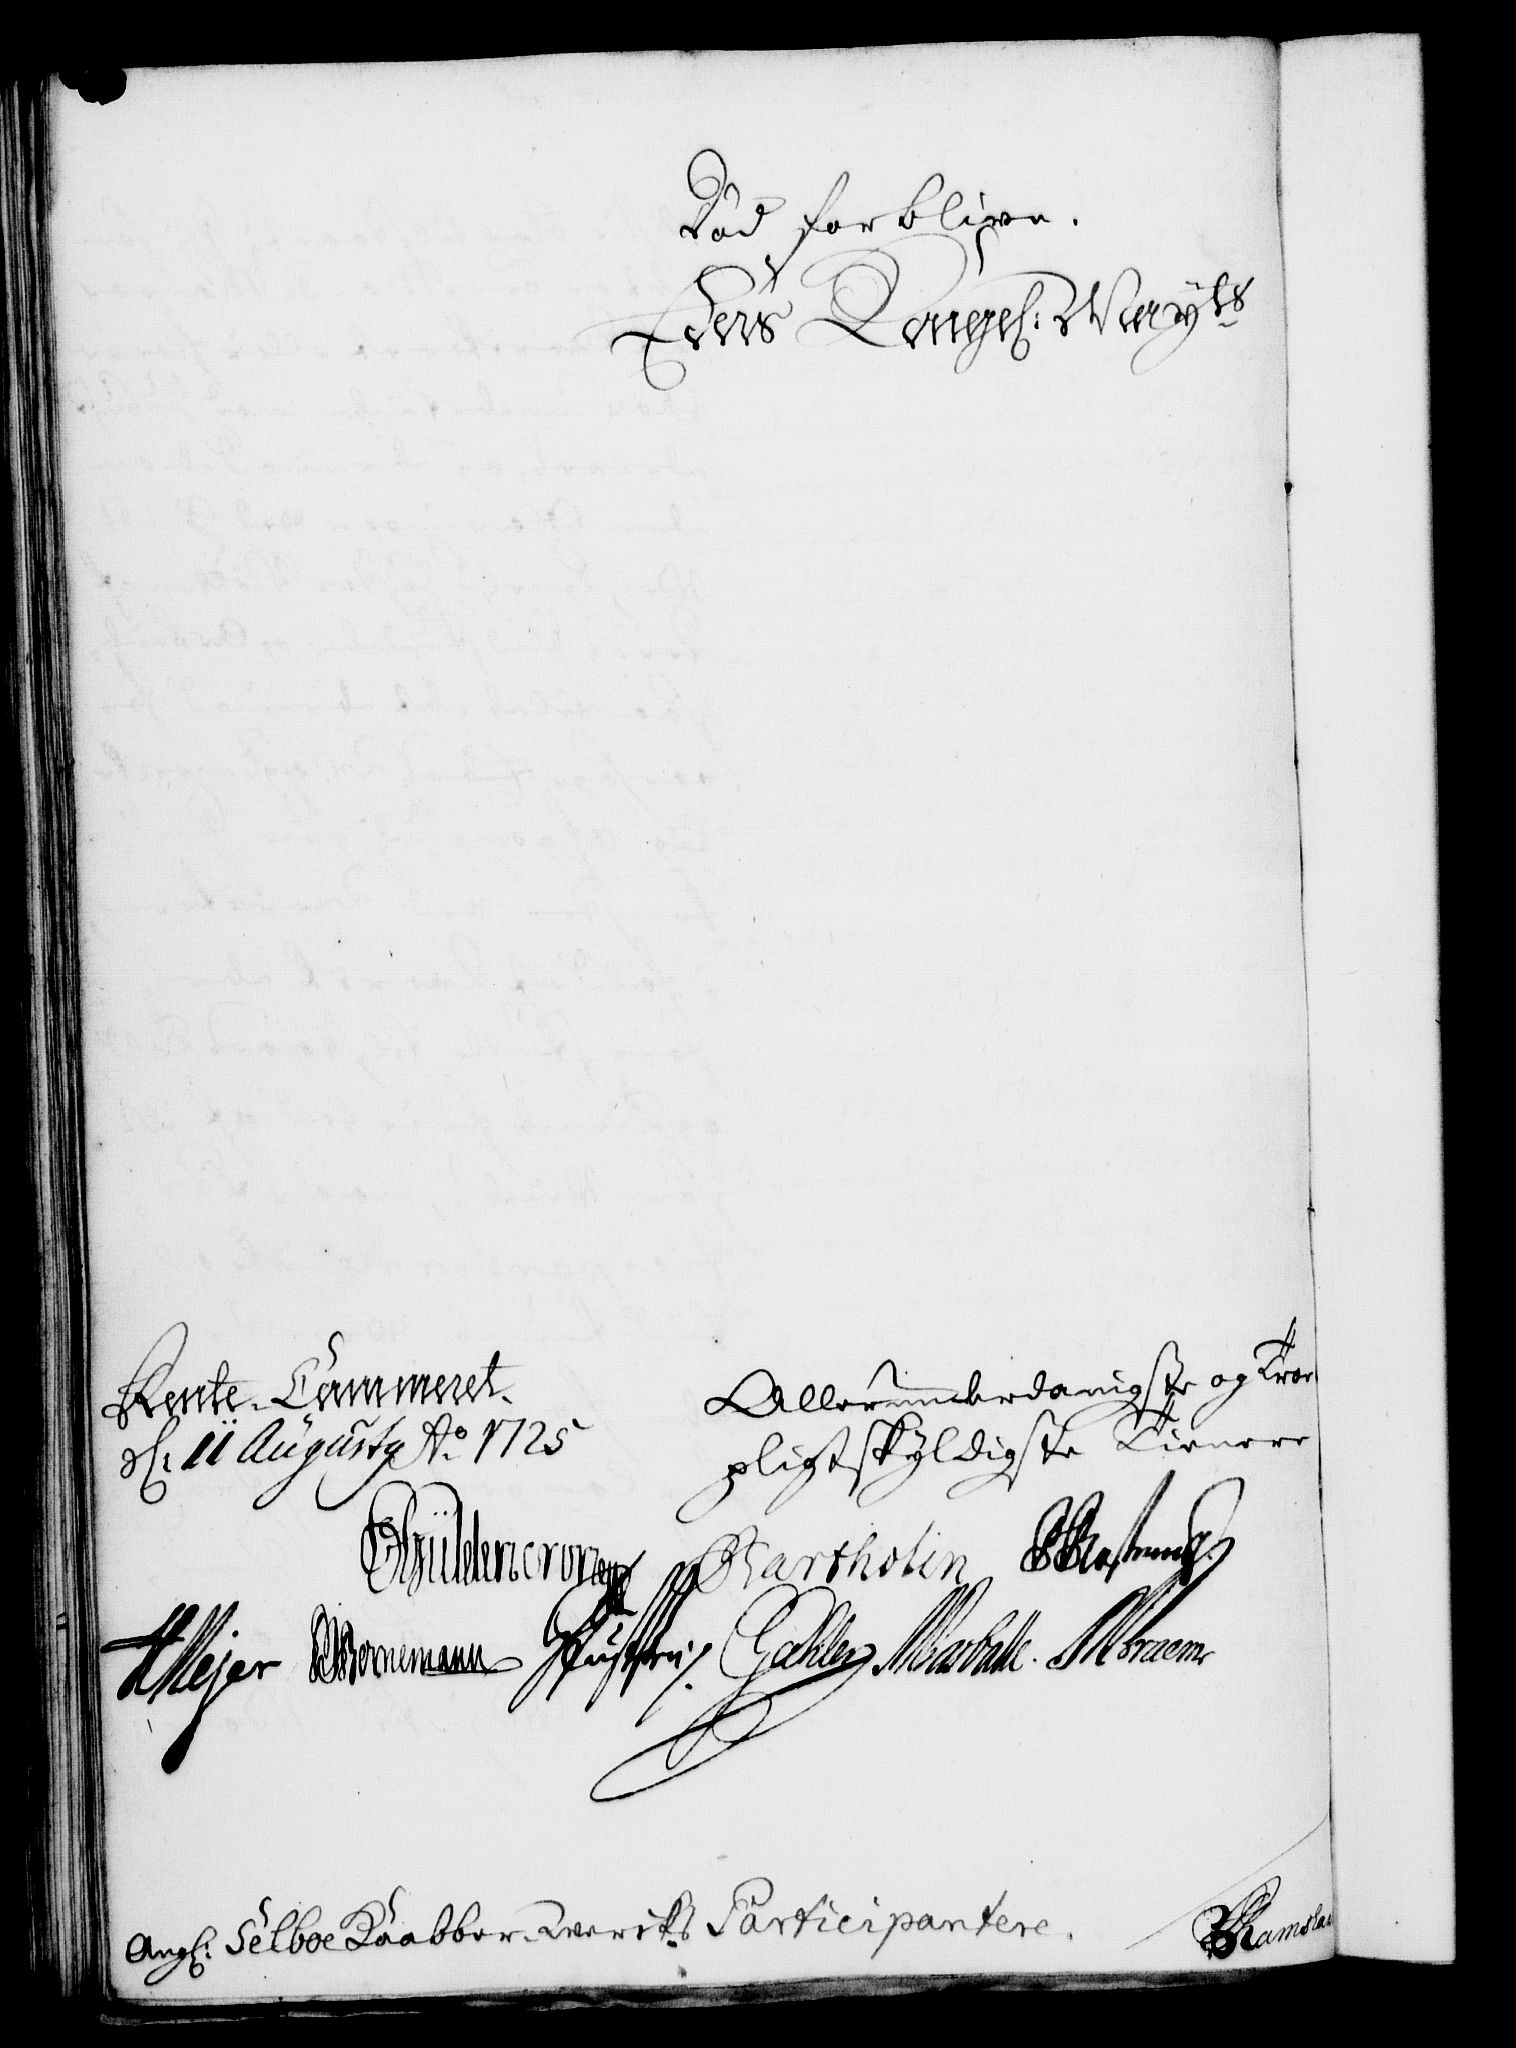 Död forblive.
Eders Kongel: May:ts
Rente-Cammeret
d: 11 Augusty Ao 1725
Allerunderdanigste og Troe
pligtskyldigste Tienere
Güldencrone Bartholin
Meyer Bornemann Gähler
Angl: Selboe Kaabber-Werks Participantere.
Ramslau